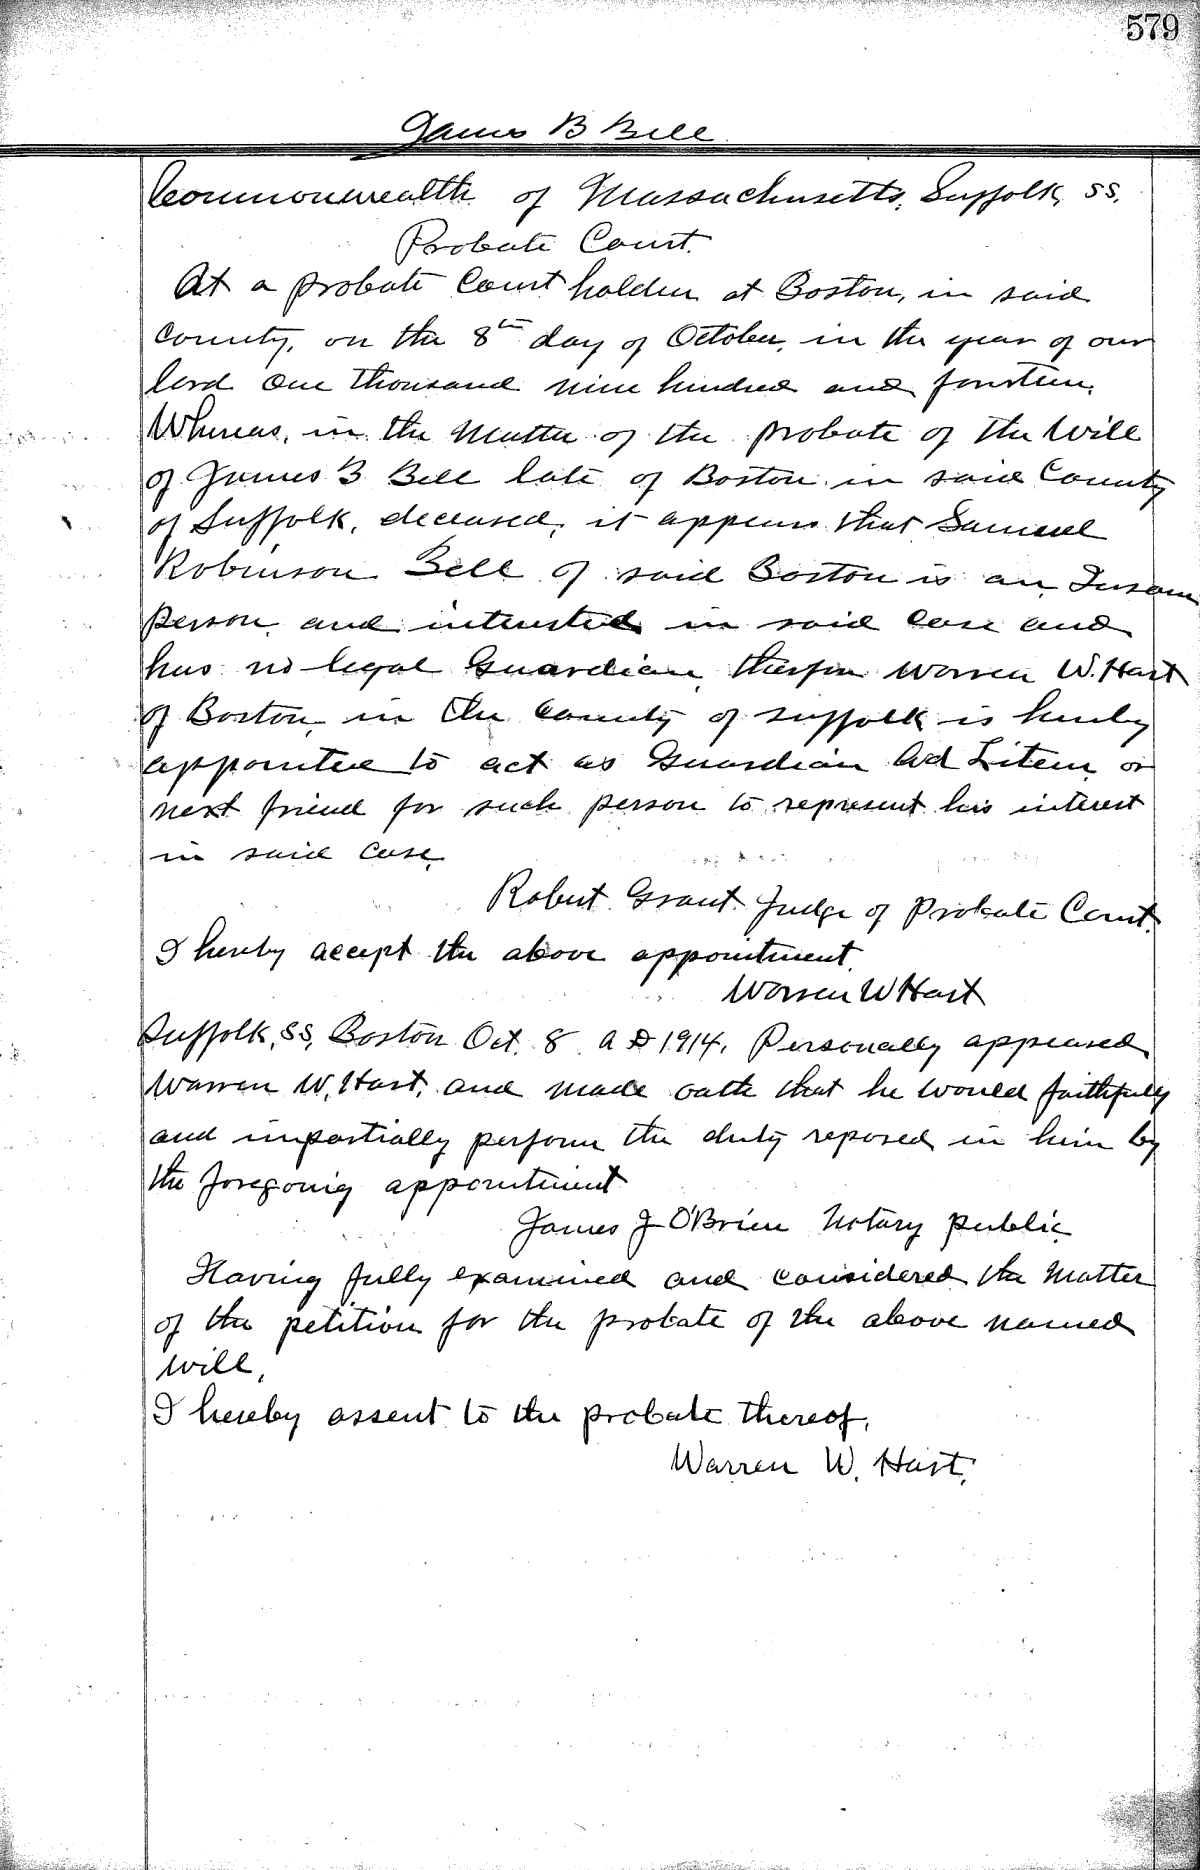 579
James B Bell
Commonwealth of Massachusetts, Suffolk, ss.
Probate Court.
At a probate Court holden at Boston, in said
County, on the 8th day of October, in the year of our
lord one thousand nine hundred and fourteen.
Whereas, in the Matter of the probate of the Will
of James B Bell late of Boston in said County
of Suffolk, deceased, it appears that Samuel
Robinson Bell of said Boston is an Insane
person and interested in said case and
has no legal Guardian, therefore Warren W. Hart
of Boston, in the County of Suffolk is hereby
appointed to act as Guardian Ad Litem or
next friend for such person to represent his interest
in said case.
Robert Grant Judge of Probate Court.
I hereby accept the above appointment.
Warren W Hart
Suffolk, SS, Boston Oct. 8 A D 1914, Personally appeared
Warren W, Hart, and made oath that he would faithfully
and impartially perform the duty reposed in him by
the foregoing appointment
James J O'Brien Notary public
Having fully examined and considered the Matter
of the petition for the probate of the above named
will,
I hereby assent to the probate thereof,
Warren W. Hart.